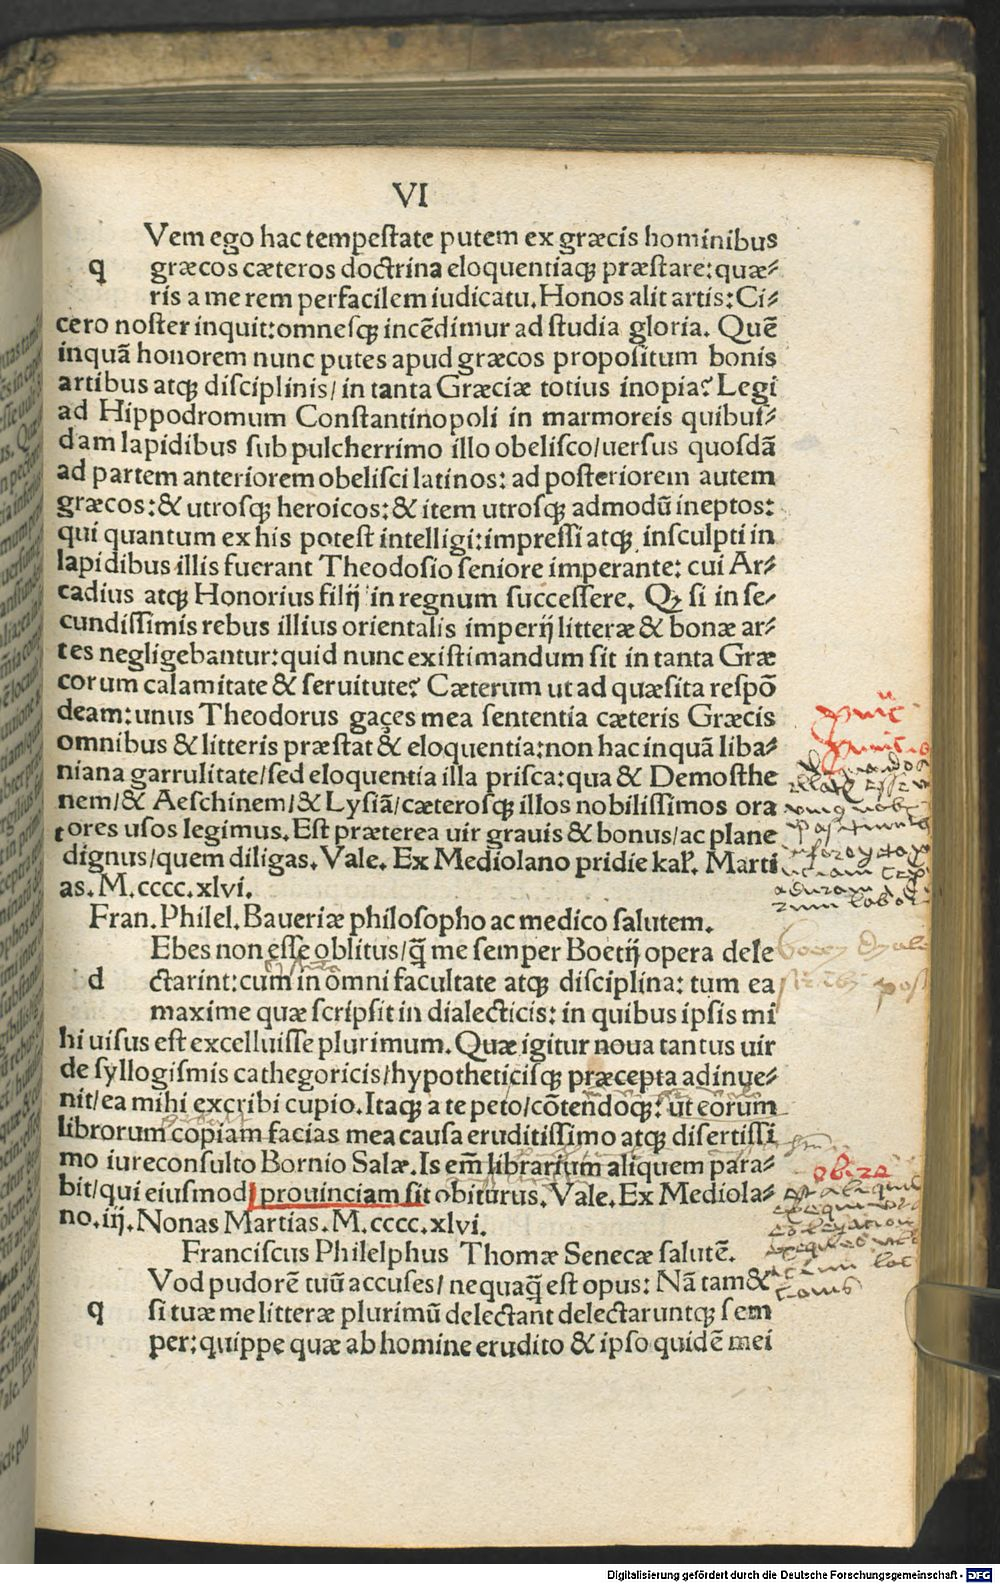 VI
Vem ego hac tempeſtate putem ex græcis hominibus
q græcos cæteros doctrina eloquentiaqꝫ præſtare: quæ⸗
ris a me rem perfacilem iudicatu. Honos alit artis: Ci⸗
cero noſter inquit: omneſqꝫ incēdimur ad ſtudia gloria. Quē
inquā honorem nunc putes apud græcos propoſitum bonis
artibus atqꝫ diſciplinis/ in tanta Græciæ totius inopia? Legi
ad Hippodromum Conſtantinopoli in marmoreis quibuſ⸗
dam lapidibus ſub pulcherrimo illo obeliſco/uerſus quoſdā
ad partem anteriorem obeliſci latinos: ad poſteriorem autem
græcos: & utroſqꝫ heroicos: & item utroſqꝫ admodū ineptos:
qui quantum ex his poteſt intelligi: impreſſi atqꝫ inſculpti in
lapidibus illis fuerant Theodoſio ſeniore imperante: cui Ar⸗
cadius atqꝫ Honorius filij in regnum ſucceſſere. Qꝫ ſi in ſe⸗
cundiſſimis rebus illius orientalis imperij litteræ & bonæ ar⸗
tes negligebantur: quid nunc exiſtimandum ſit in tanta Græ
corum calamitate & ſeruitute? Cæterum ut ad quæſita reſpō
deam: unus Theodorus gaçes mea ſententia cæteris Græcis
omnibus & litteris præſtat & eloquentia: non hac inquā liba⸗
niana garrulitate/ſed eloquentia illa priſca: qua & Demoſthe
nem/& Aeſchinem/& Lyſiā/cæteroſqꝫ illos nobiliſſimos ora
tores uſos legimus. Eſt præterea uir grauis & bonus/ac plane
dignus/quem diligas. Vale. Ex Mediolano pridie kal̕. Marti
as. M. cccc. xlvi.
Fran. Philel. Baueriæ philoſopho ac medico ſalutem.
Ebes non eſſe oblitus/q̄ me ſemper Boetij opera dele
d ctarint: cum in omni facultate atqꝫ diſciplina: tum ea
maxime quæ ſcripſit in dialecticis: in quibus ipſis mi
hi uiſus eſt excelluiſſe plurimum. Quæ igitur noua tantus uir
de ſyllogiſmis cathegoricis/hypotheticiſqꝫ præcepta adinue⸗
nit/ea mihi excribi cupio. Itaqꝫ a te peto/cōtendoqꝫ: ut eorum
librorum copiam facias mea cauſa eruditiſſimo atqꝫ diſertiſſi
mo iureconſulto Bornio Salæ. Is em̄ librarium aliquem para⸗
bit/qui eiuſmodi prouinciam ſit obiturus. Vale. Ex Mediola⸗
no. iij. Nonas Martias. M. cccc. xlvi.
Franciſcus Philelphus Thomæ Senecæ ſalutē.
Vod pudorē tuū accuſes/ nequaq̄ eſt opus: Nā tam &
q ſi tuæ me litteræ plurimū delectant delectaruntqꝫ ſem
per: quippe quæ ab homine erudito & ipſo quidē mei
obire
Digitalisierung gefördert durch die Deutsche Forschungsgemeinschaft - DFG